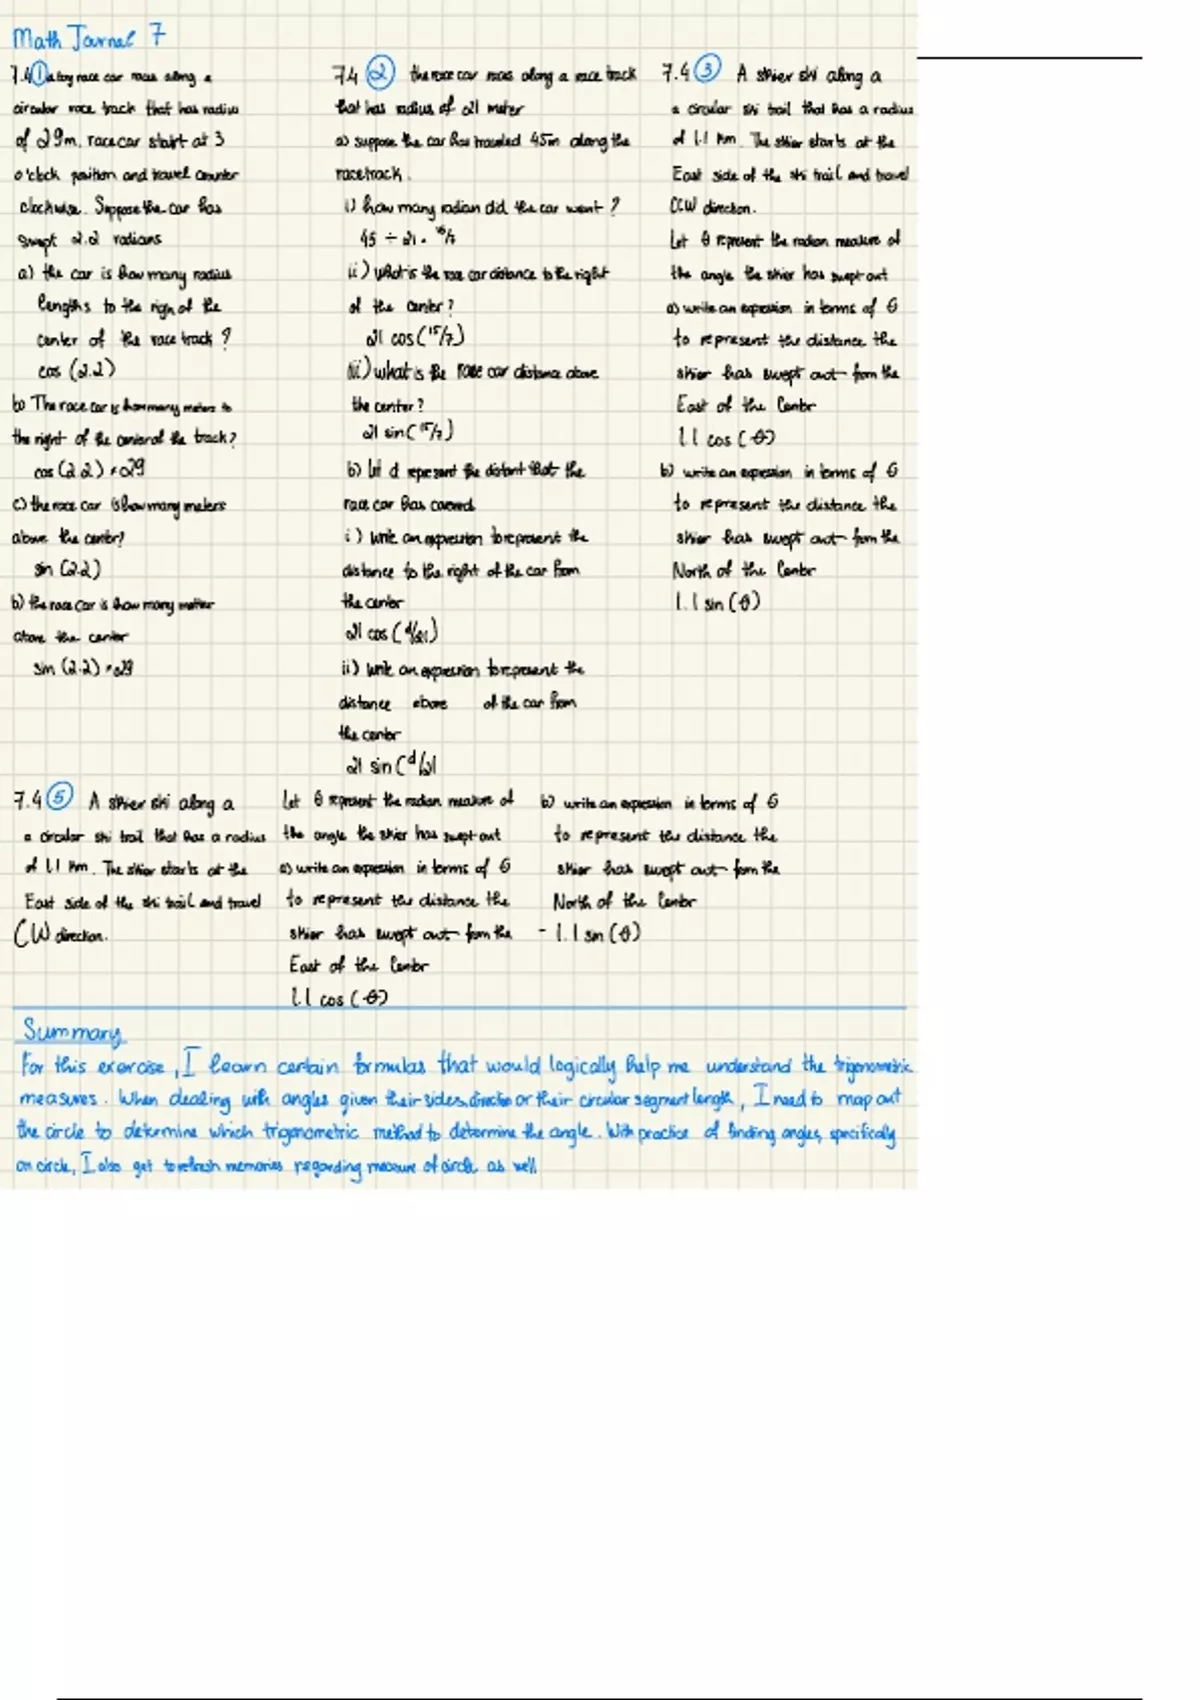 Math Journal 7
7.4 ① a toy race car races along a
circular race track that has radius
of 29m. race car start at 3
o'clock position and travel counter
clockwise. Suppose the car has
swept 2.2 radians
a) the car is how many radius
lengths to the righ of the
center of the race track ?
cos (2.2)
b) The race car is how many meters to
the right of the center of the track?
cos (2.2) * 29
c) the race car is how many meters
above the center?
sin (2.2)
b) the race car is how many metter
above the center
sin (2.2) * 29
7.4 ② the race car races along a race track
that has radius of 21 meter
a) suppose the car has traveled 45m along the
racetrack.
i) how many radian did the car went ?
45 ÷ 21 = 15/7
ii) what is the race car distance to the right
of the center ?
21 cos (15/7)
iii) what is the race car distance above
the center ?
21 sin (15/7)
b) let d represent the distant that the
race car has covered
i) write an expression to represent the
distance to the right of the car from
the center
21 cos (d/21)
ii) write an expression to represent the
distance above of the car from
the center
21 sin (d/21
7.4 ③ A skier ski along a
a circular ski trail that has a radius
of 1.1 km. The skier starts at the
East side of the ski trail and travel
CCW direction.
Let θ represent the radian measure of
the angle the skier has swept out
a) write an expression in terms of θ
to represent the distance the
skier has swept out from the
East of the Center
1.1 cos (θ)
b) write an expression in terms of θ
to represent the distance the
skier has swept out from the
North of the Center
1.1 sin (θ)
7.4 ⑤ A skier ski along a
a circular ski trail that has a radius
of 1.1 km. The skier starts at the
East side of the ski trail and travel
CW direction.
Let θ represent the radian measure of
the angle the skier has swept out
a) write an expression in terms of θ
to represent the distance the
skier has swept out from the
East of the Center
1.1 cos (θ)
b) write an expression in terms of θ
to represent the distance the
skier has swept out from the
North of the Center
- 1.1 sin (θ)
Summary
For this exercise, I learn certain formulas that would logically help me understand the trigonometric
measures. When dealing with angles given their sides, direction or their circular segment length, I need to map out
the circle to determine which trigonometric method to determine the angle. With practice of finding angles, specifically
on circle, I also get to refresh memories regarding measure of circle as well